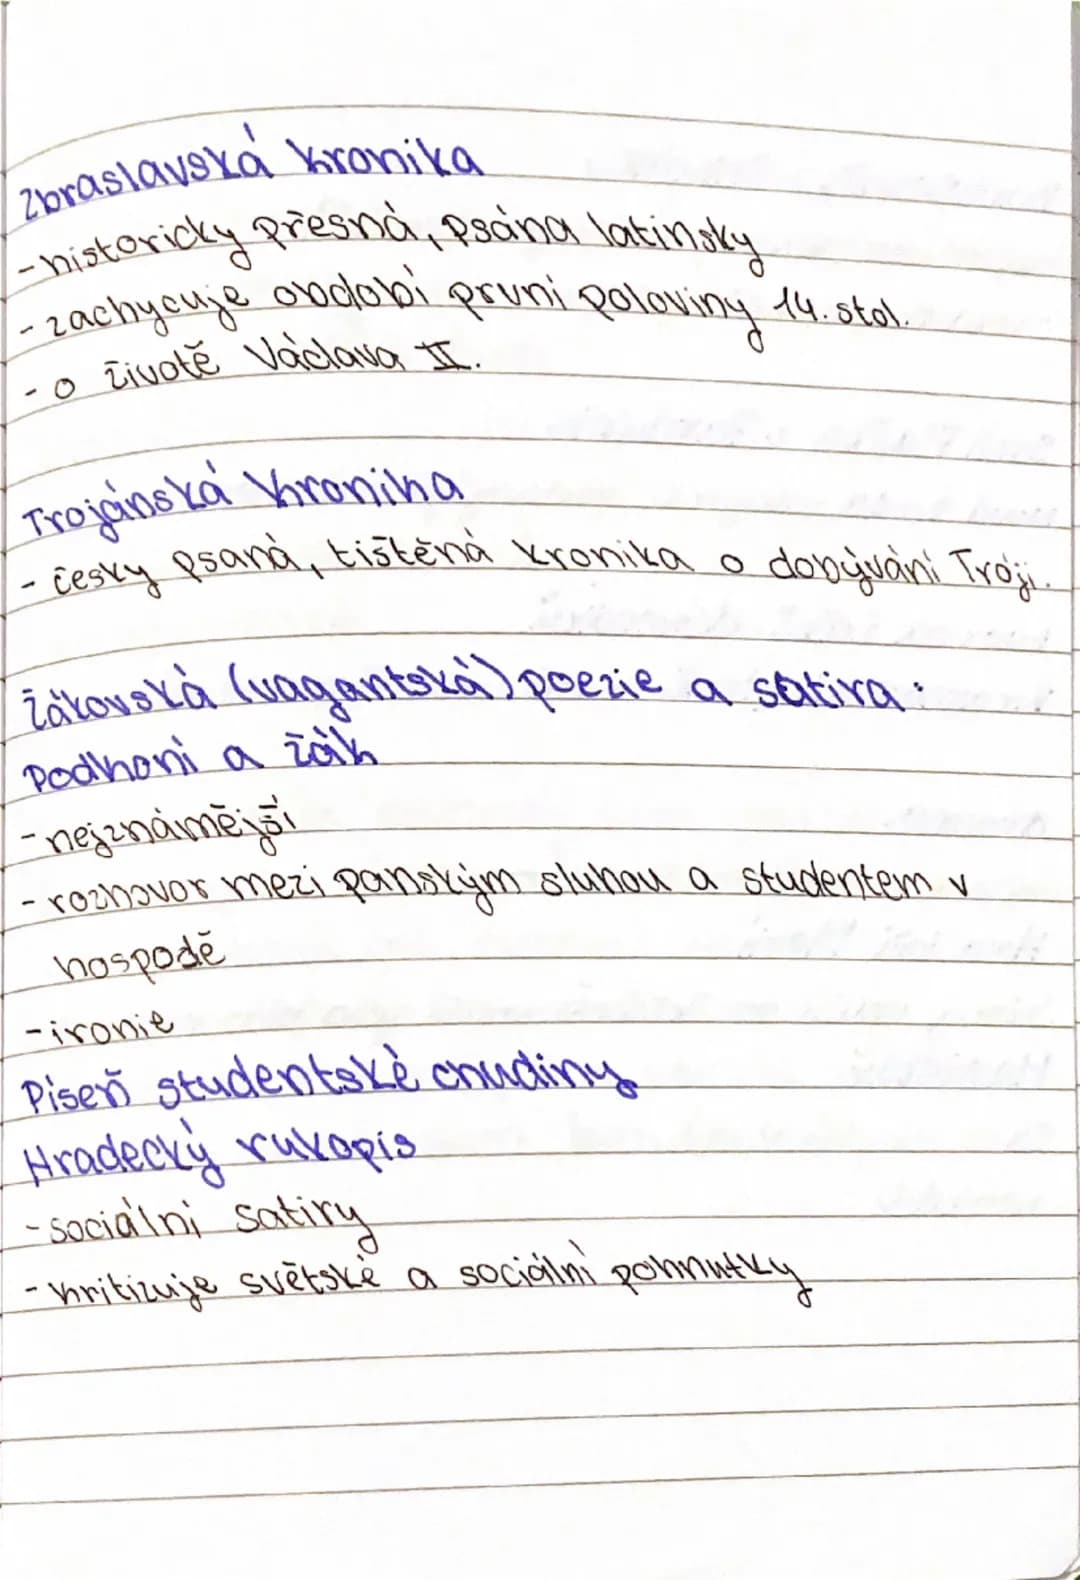 Zbraslavská kronika
- historicky přesná, psána latinsky
- zachycuje období první poloviny 14. stol.
- o životě Václava II.
Trojánská kronika
- česky psaná, tištěná kronika o dobývání Tróji.
Žákovská (vagantská) poezie a satira:
Podkoní a žák
- nejznámější
- rozhovor mezi panským sluhou a studentem v
hospodě
- ironie
Píseň studentské chudiny
Hradecký rukopis
- sociální satiry
- kritizuje světské a sociální pohnutky